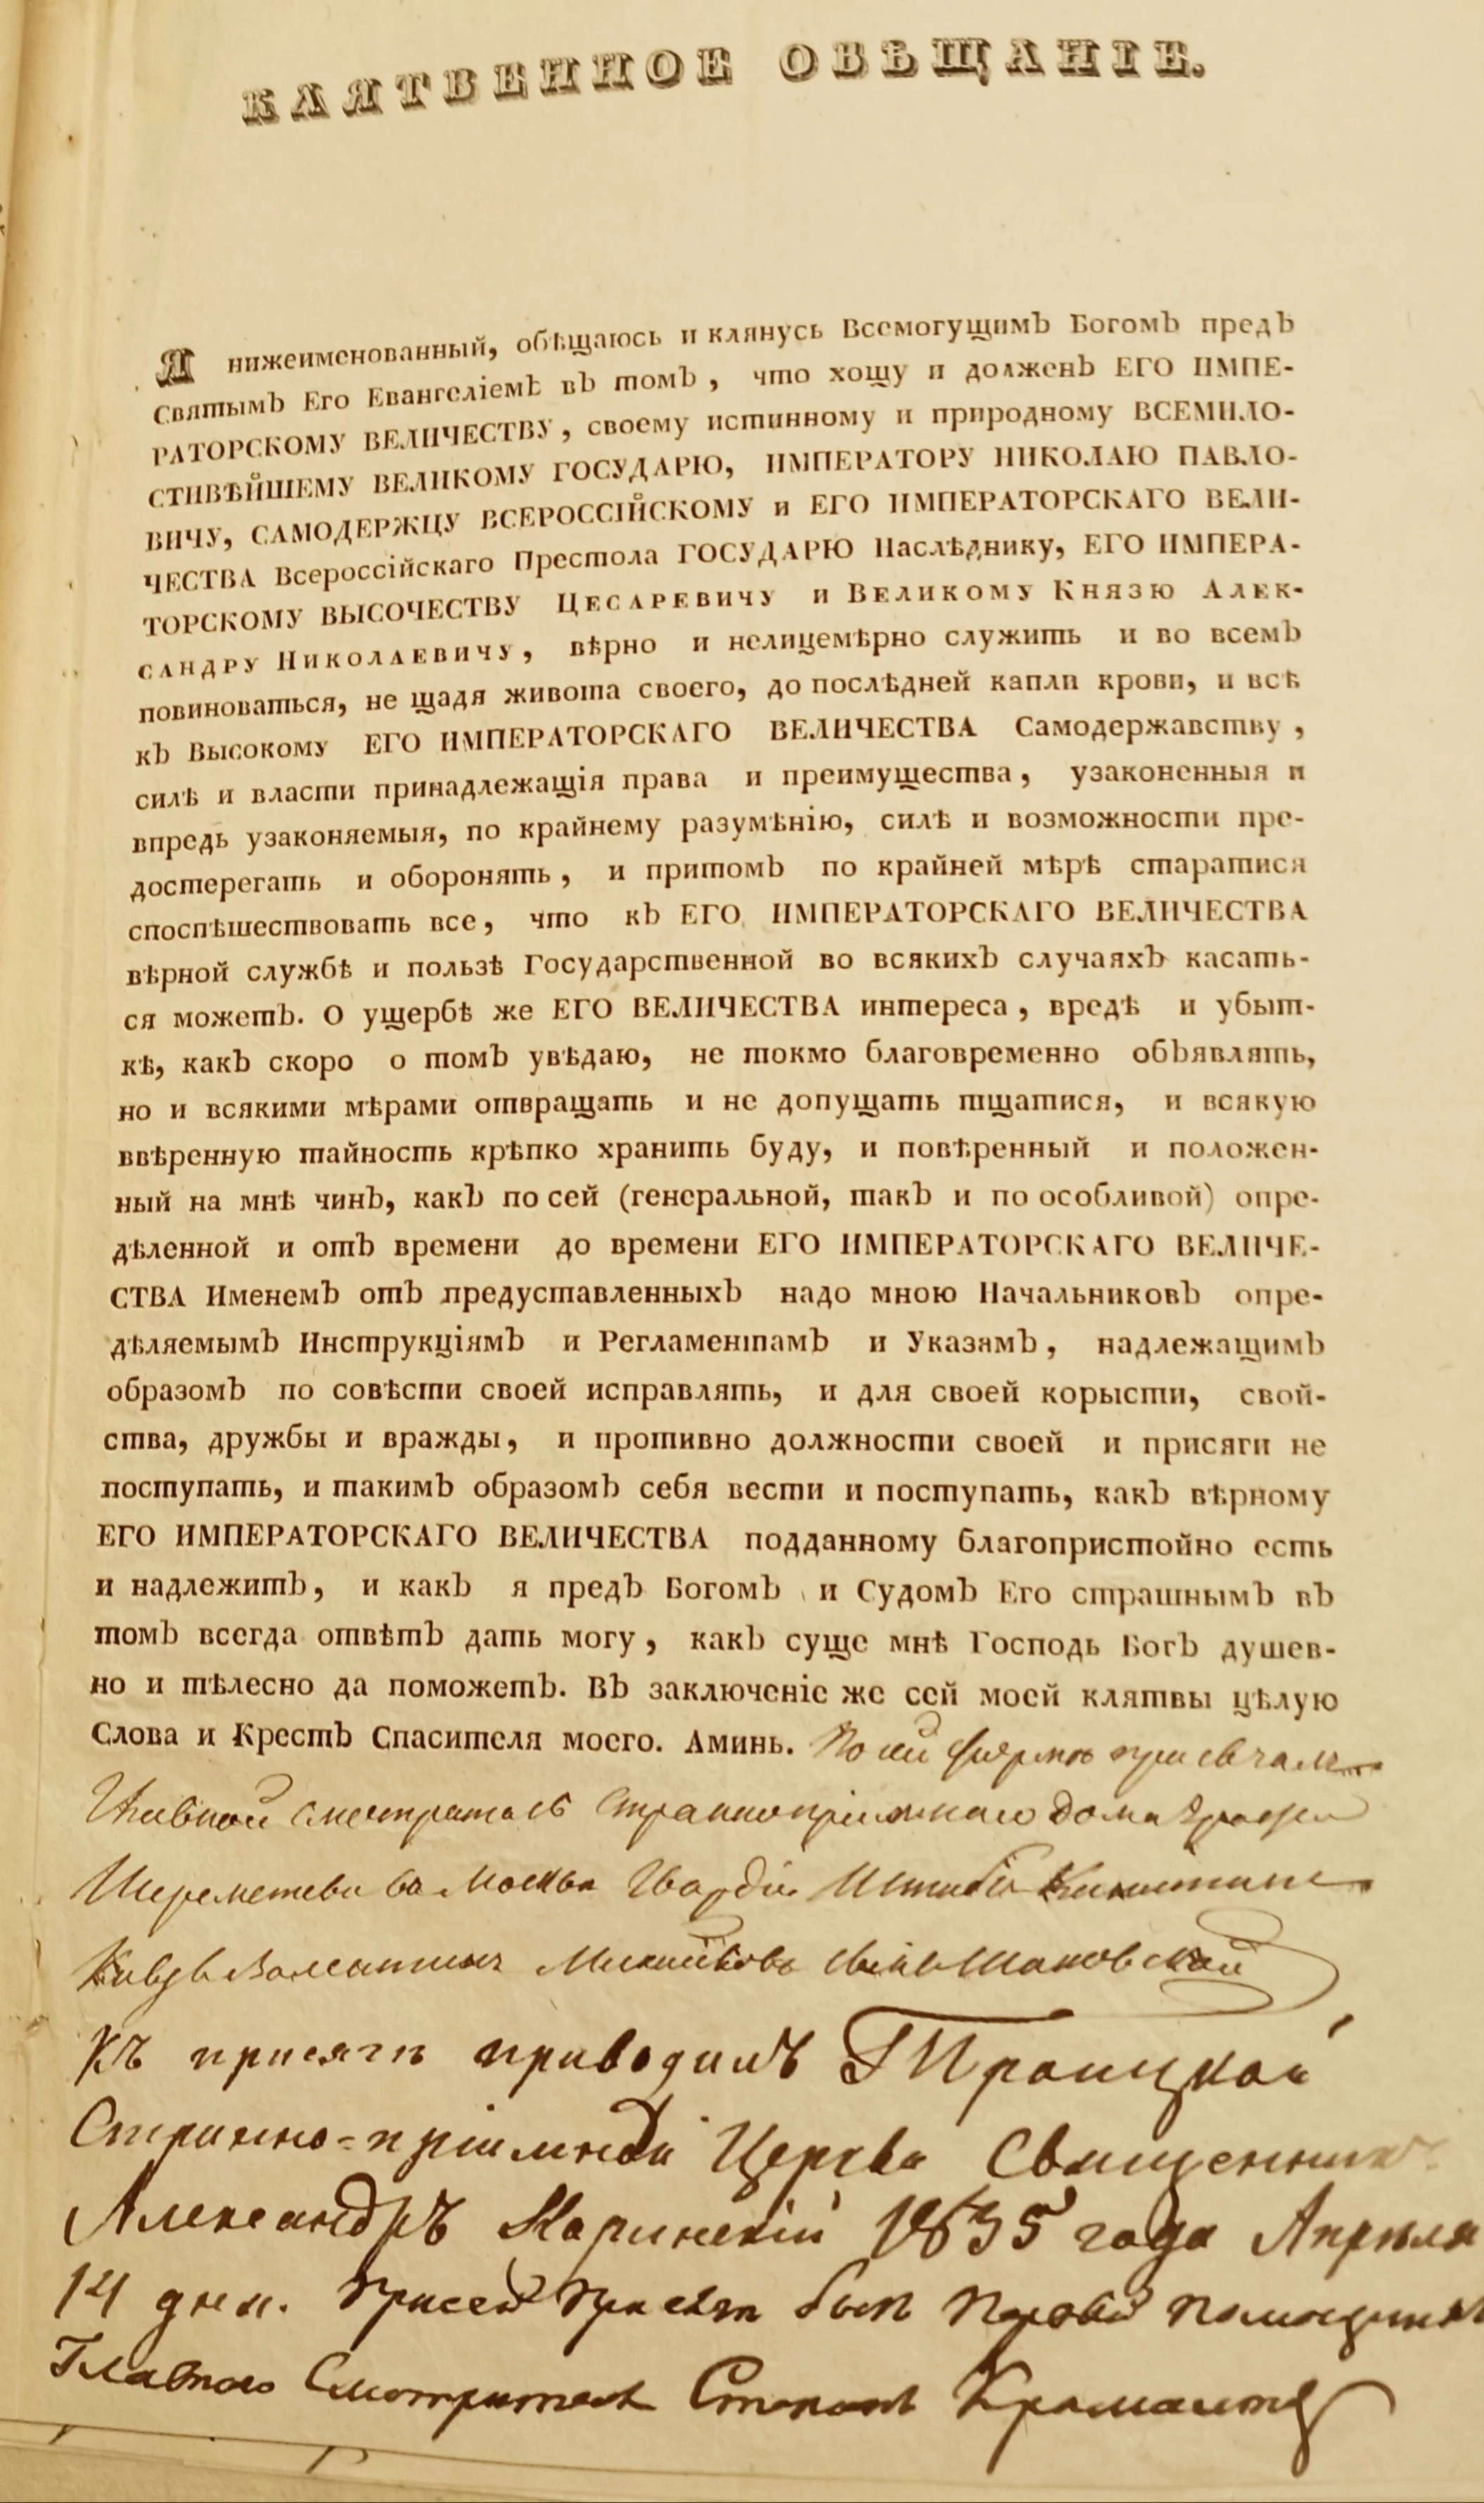 КЛЯТВЕННОЕ ОБѢЩАНІЕ.
Я нижеименованный, обѣщаюсь и клянусь Всемогущимъ Богомъ предъ
Святымъ Его Евангеліемъ въ томъ, что хощу и долженъ ЕГО ИМПЕ-
РАТОРСКОМУ ВЕЛИЧЕСТВУ, своему истинному и природному ВСЕМИЛО-
СТИВѢЙШЕМУ ВЕЛИКОМУ ГОСУДАРЮ, ИМПЕРАТОРУ НИКОЛАЮ ПАВЛО-
ВИЧУ, САМОДЕРЖЦУ ВСЕРОССІЙСКОМУ и ЕГО ИМПЕРАТОРСКАГО ВЕЛИ-
ЧЕСТВА Всероссійскаго Престола ГОСУДАРЮ Наслѣднику, ЕГО ИМПЕРА-
ТОРСКОМУ ВЫСОЧЕСТВУ ЦЕСАРЕВИЧУ и ВЕЛИКОМУ КНЯЗЮ АЛЕК-
САНДРУ НИКОЛАЕВИЧУ, вѣрно и нелицемѣрно служить и во всемъ
повиноваться, не щадя живота своего, до послѣдней капли крови, и всѣ
къ Высокому ЕГО ИМПЕРАТОРСКАГО ВЕЛИЧЕСТВА Самодержавству,
силѣ и власти принадлежащія права и преимущества, узаконенныя и
впредь узаконяемыя, по крайнему разумѣнію, силѣ и возможности пре-
достерегать и оборонять, и притомъ по крайней мѣрѣ старатися
споспѣшествовать все, что къ ЕГО ИМПЕРАТОРСКАГО ВЕЛИЧЕСТВА
вѣрной службѣ и пользѣ Государственной во всякихъ случаяхъ касать-
ся можетъ. О ущербѣ же ЕГО ВЕЛИЧЕСТВА интереса, вредѣ и убыт-
кѣ, какъ скоро о томъ увѣдаю, не токмо благовременно объявлять,
но и всякими мѣрами отвращать и не допущать тщатися, и всякую
ввѣренную тайность крѣпко хранить буду, и повѣренный и положен-
ный на мнѣ чинъ, какъ по сей (генеральной, такъ и по особливой) опре-
дѣленной и отъ времени до времени ЕГО ИМПЕРАТОРСКАГО ВЕЛИЧЕ-
СТВА Именемъ отъ предуставленныхъ надо мною Начальниковъ опре-
дѣляемымъ Инструкціямъ и Регламентамъ и Указамъ, надлежащимъ
образомъ по совѣсти своей исправлять, и для своей корысти, свой-
ства, дружбы и вражды, и противно должности своей и присяги не
поступать, и такимъ образомъ себя вести и поступать, какъ вѣрному
ЕГО ИМПЕРАТОРСКАГО ВЕЛИЧЕСТВА подданному благопристойно есть
и надлежитъ, и какъ я предъ Богомъ и Судомъ Его страшнымъ въ
томъ всегда отвѣтъ дать могу, какъ суще мнѣ Господь Богъ душев-
но и тѣлесно да поможетъ. Въ заключеніе же сей моей клятвы цѣлую
Слова и Крестъ Спасителя моего. Аминь. По сей формѣ присягалъ
Главной смотритель Страннопріимнаго Дома Графа
Шереметева въ Москвѣ Гвардіи Штабсъ Капитанъ
Князь Валентинъ Михайловъ сынъ Шаховской
Къ присягѣ приводилъ Троицкой
Странно-пріимной Церкви Священникъ
Александръ 1835 года Апрѣля
14 дня. При сей присягѣ былъ Первой помощникъ
Главнаго Смотрителя Степанъ